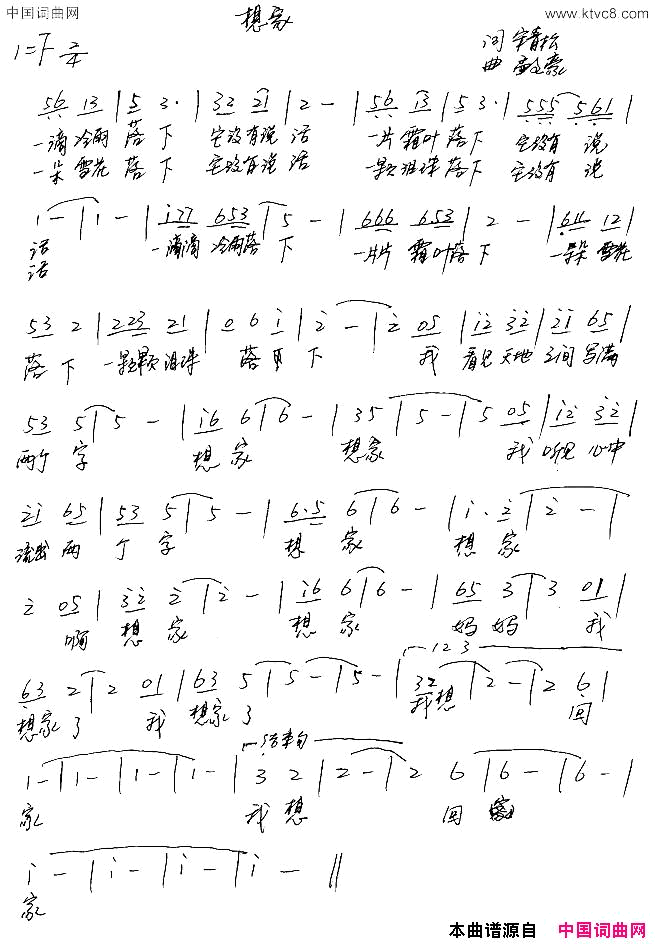 中国词曲网
www.ktvc8.com
想家
1=F 2/4
词
曲
56 13 | 5 3· | 32 21 | 2 - | 56 i3 | 5 3· | 555 561 |
一滴冷雨 落下 它没有说 话 一片霜叶 落下 它没有 说
一朵雪花 落下 它没有说 话 一颗泪珠 落下 它没有 说
1 - | 1 - | i77 653 | 5 - | 666 653 | 2 - | 611 12 |
话 一滴滴 冷雨落 下 一片片 霜叶落 下 一朵朵 雪花
话
53 2 | 223 21 | 0 6 i | 2 - | 2 05 | i2 32 | 2i 65 |
落 下 一颗颗 泪珠 落 下 我 看见 天地 之间 写满
53 5 | 5 - | i6 6 | 6 - | 35 | 5 - | 5 05 | i2 32 |
两个 字 想 家 想家 我 听见 心中
2i 65 | 53 5 | 5 - | 6·5 6 | 6 - | i· 2 | 2 - |
流出 两 个 字 想 家 想 家
2 05 | 32 2 | 2 - | i6 6 | 6 - | 65 3 | 3 01 |
啊 想 家 想 家 妈 妈 我
1 2 3
63 2 | 2 01 | 63 5 | 5 - | 5 - | 32 | 2 - | 2 6 |
想家 了 我 想家 了 我想 回
结束句
1 - | 1 - | 1 - | 1 - | 3 2 | 2 - | 2 6 | 6 - | 6 - |
家 我 想 回
i - | i - | i - | i - ‖
家
本曲谱源自 中国词曲网